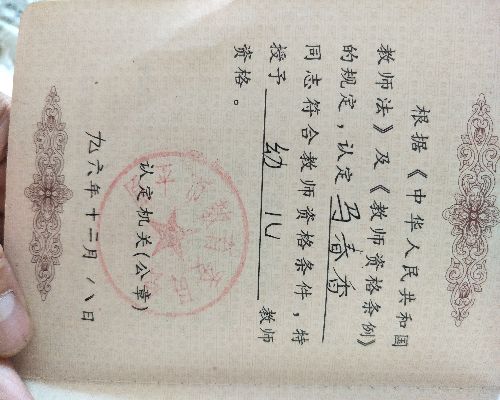 根据《中华人民共和国
教师法》及《教师资格条例》
的规定，认定 马春香
同志符合教师资格条件，特
授予 幼儿 教师
资格。
认定机关(公章)
九六年十二月八日